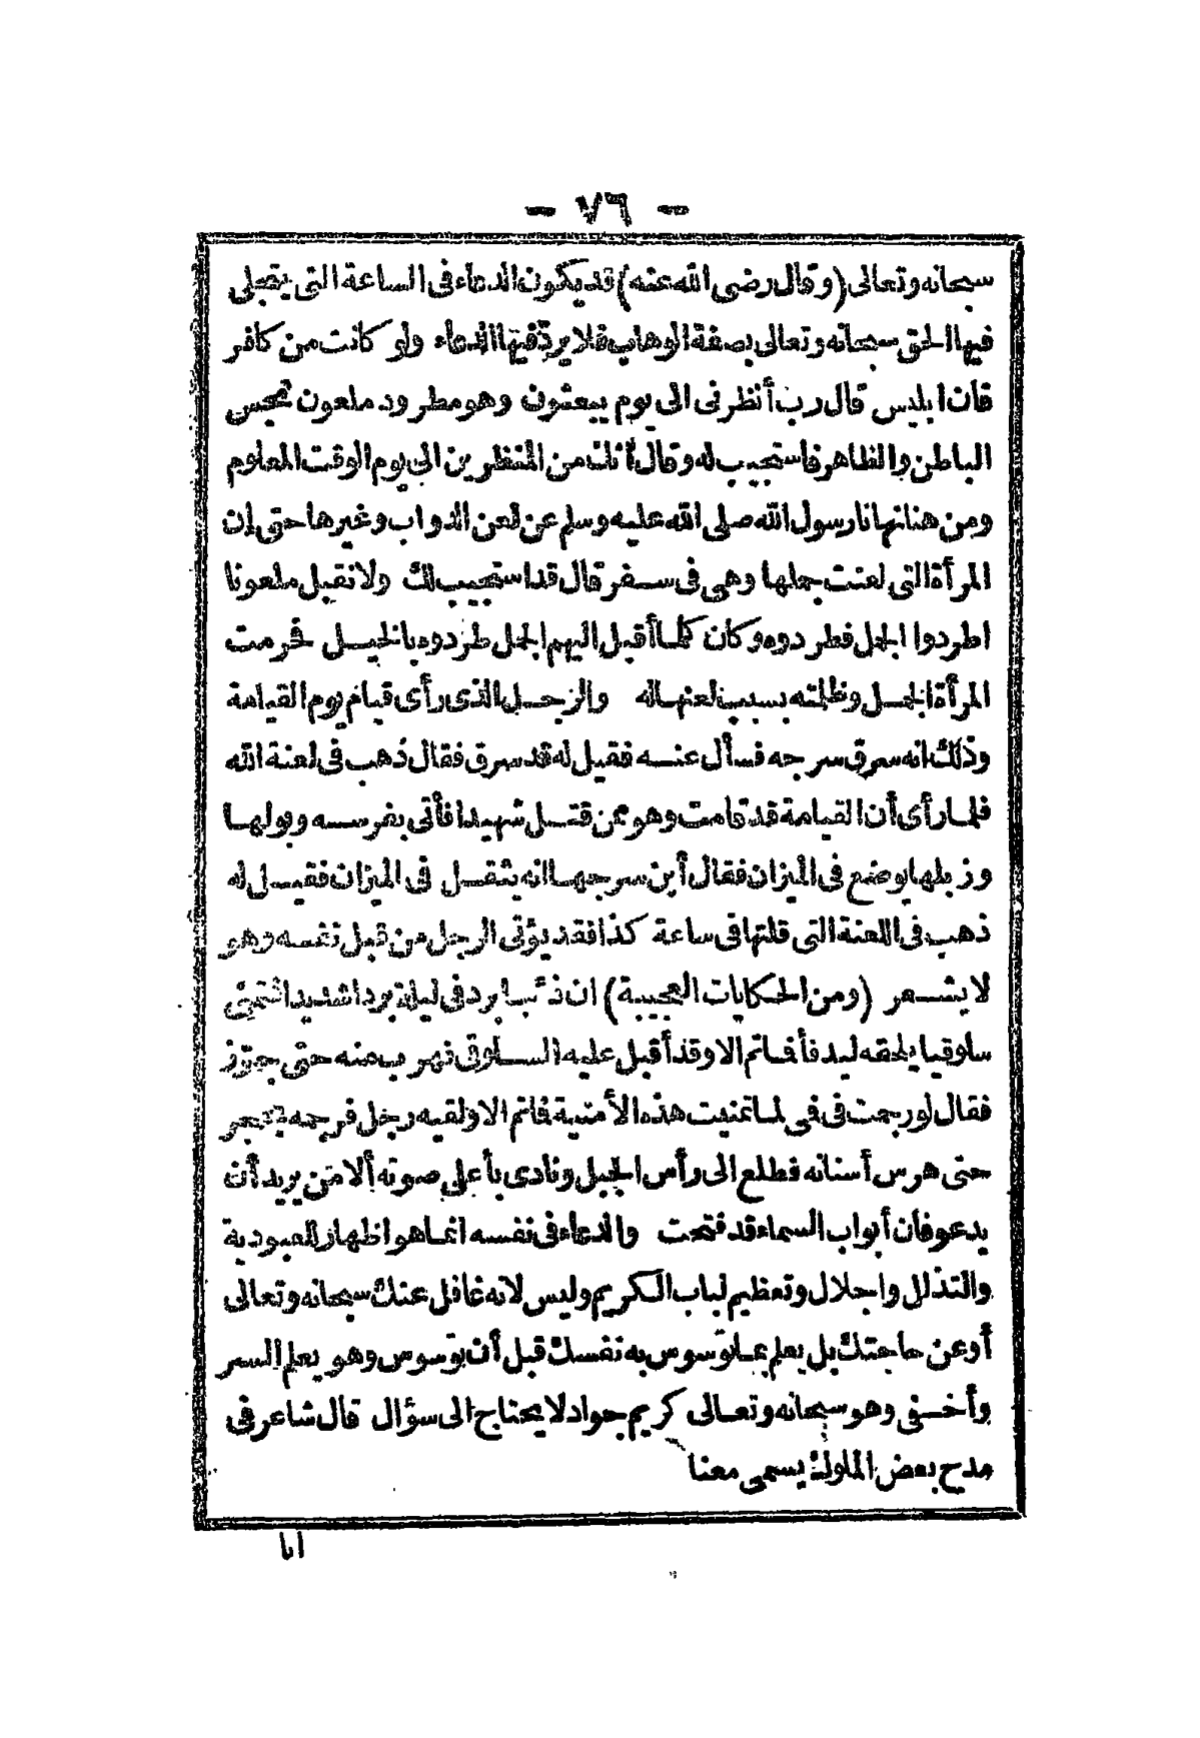 — ٧٦ —
سبحانه وتعالى (وقال رضى الله عنه) قد يكون الدعاء فى الساعة التى يتجلى
فيها الحق سبحانه وتعالى بصفة الوهاب فلا يردّ فيها الدعاء ولو كانت من كافر
فان ابليس قال رب أنظرنى الى يوم يبعثون وهو مطرود ملعون نجس
الباطن والظاهر فاستجيب له وقال انك من المنظرين الى يوم الوقت المعلوم
ومن هنا نهانا رسول الله صلى الله عليه وسلم عن لعن الدواب وغيرها حتى إن
المرأة التى لعنت جملها وهى فى سفر قال قد استجيب لك ولا نقبل ملعونا
اطردوا الجمل فطردوه وكان كلما أقبل اليهم الجمل طردوه بالخيل فحرمت
المرأة الجمل وظلمته بسبب لعنها له والرجل الذى رأى قيام يوم القيامة
وذلك انه سرق سرجه فسأل عنه فقيل له قد سرق فقال ذهب فى لعنة الله
فلما رأى أن القيامة قد قامت وهو ممن قتل شهيدا فأتى بفرسه وبولها
وزبلها يوضع فى الميزان فقال أين سرجها انه يثقل فى الميزان فقيل له
ذهب فى اللعنة التى قلتها فى ساعة كذا فقد يؤتى الرجل من قبل نفسه وهو
لا يشعر (ومن الحكايات العجيبة) ان ذئبا برد فى ليلة بردا شديدا فتمنى
سلوقيا يلحقه ليدفأ فما تم الا وقد أقبل عليه السلوقى فهرب منه حتى
فقال لو رجمت فى فمى لما تمنيت هذه الأمنية فما تم الا ولقيه رجل فرجمه بحجر
حتى هرس أسنانه فطلع الى رأس الجبل ونادى بأعلى صوته ألا من يريد أن
يدعو فان أبواب السماء قد فتحت والدعاء فى نفسه انما هو اظهار للعبودية
والتذلل واجلال وتعظيم لباب الكريم وليس لانه غافل عنك سبحانه وتعالى
أو عن حاجتك بل يعلم بما توسوس به نفسك قبل أن توسوس وهو يعلم السر
وأخفى وهو سبحانه وتعالى كريم جواد لا يحتاج الى سؤال قال شاعر فى
مدح بعض الملوك يسمى معنا
ايا